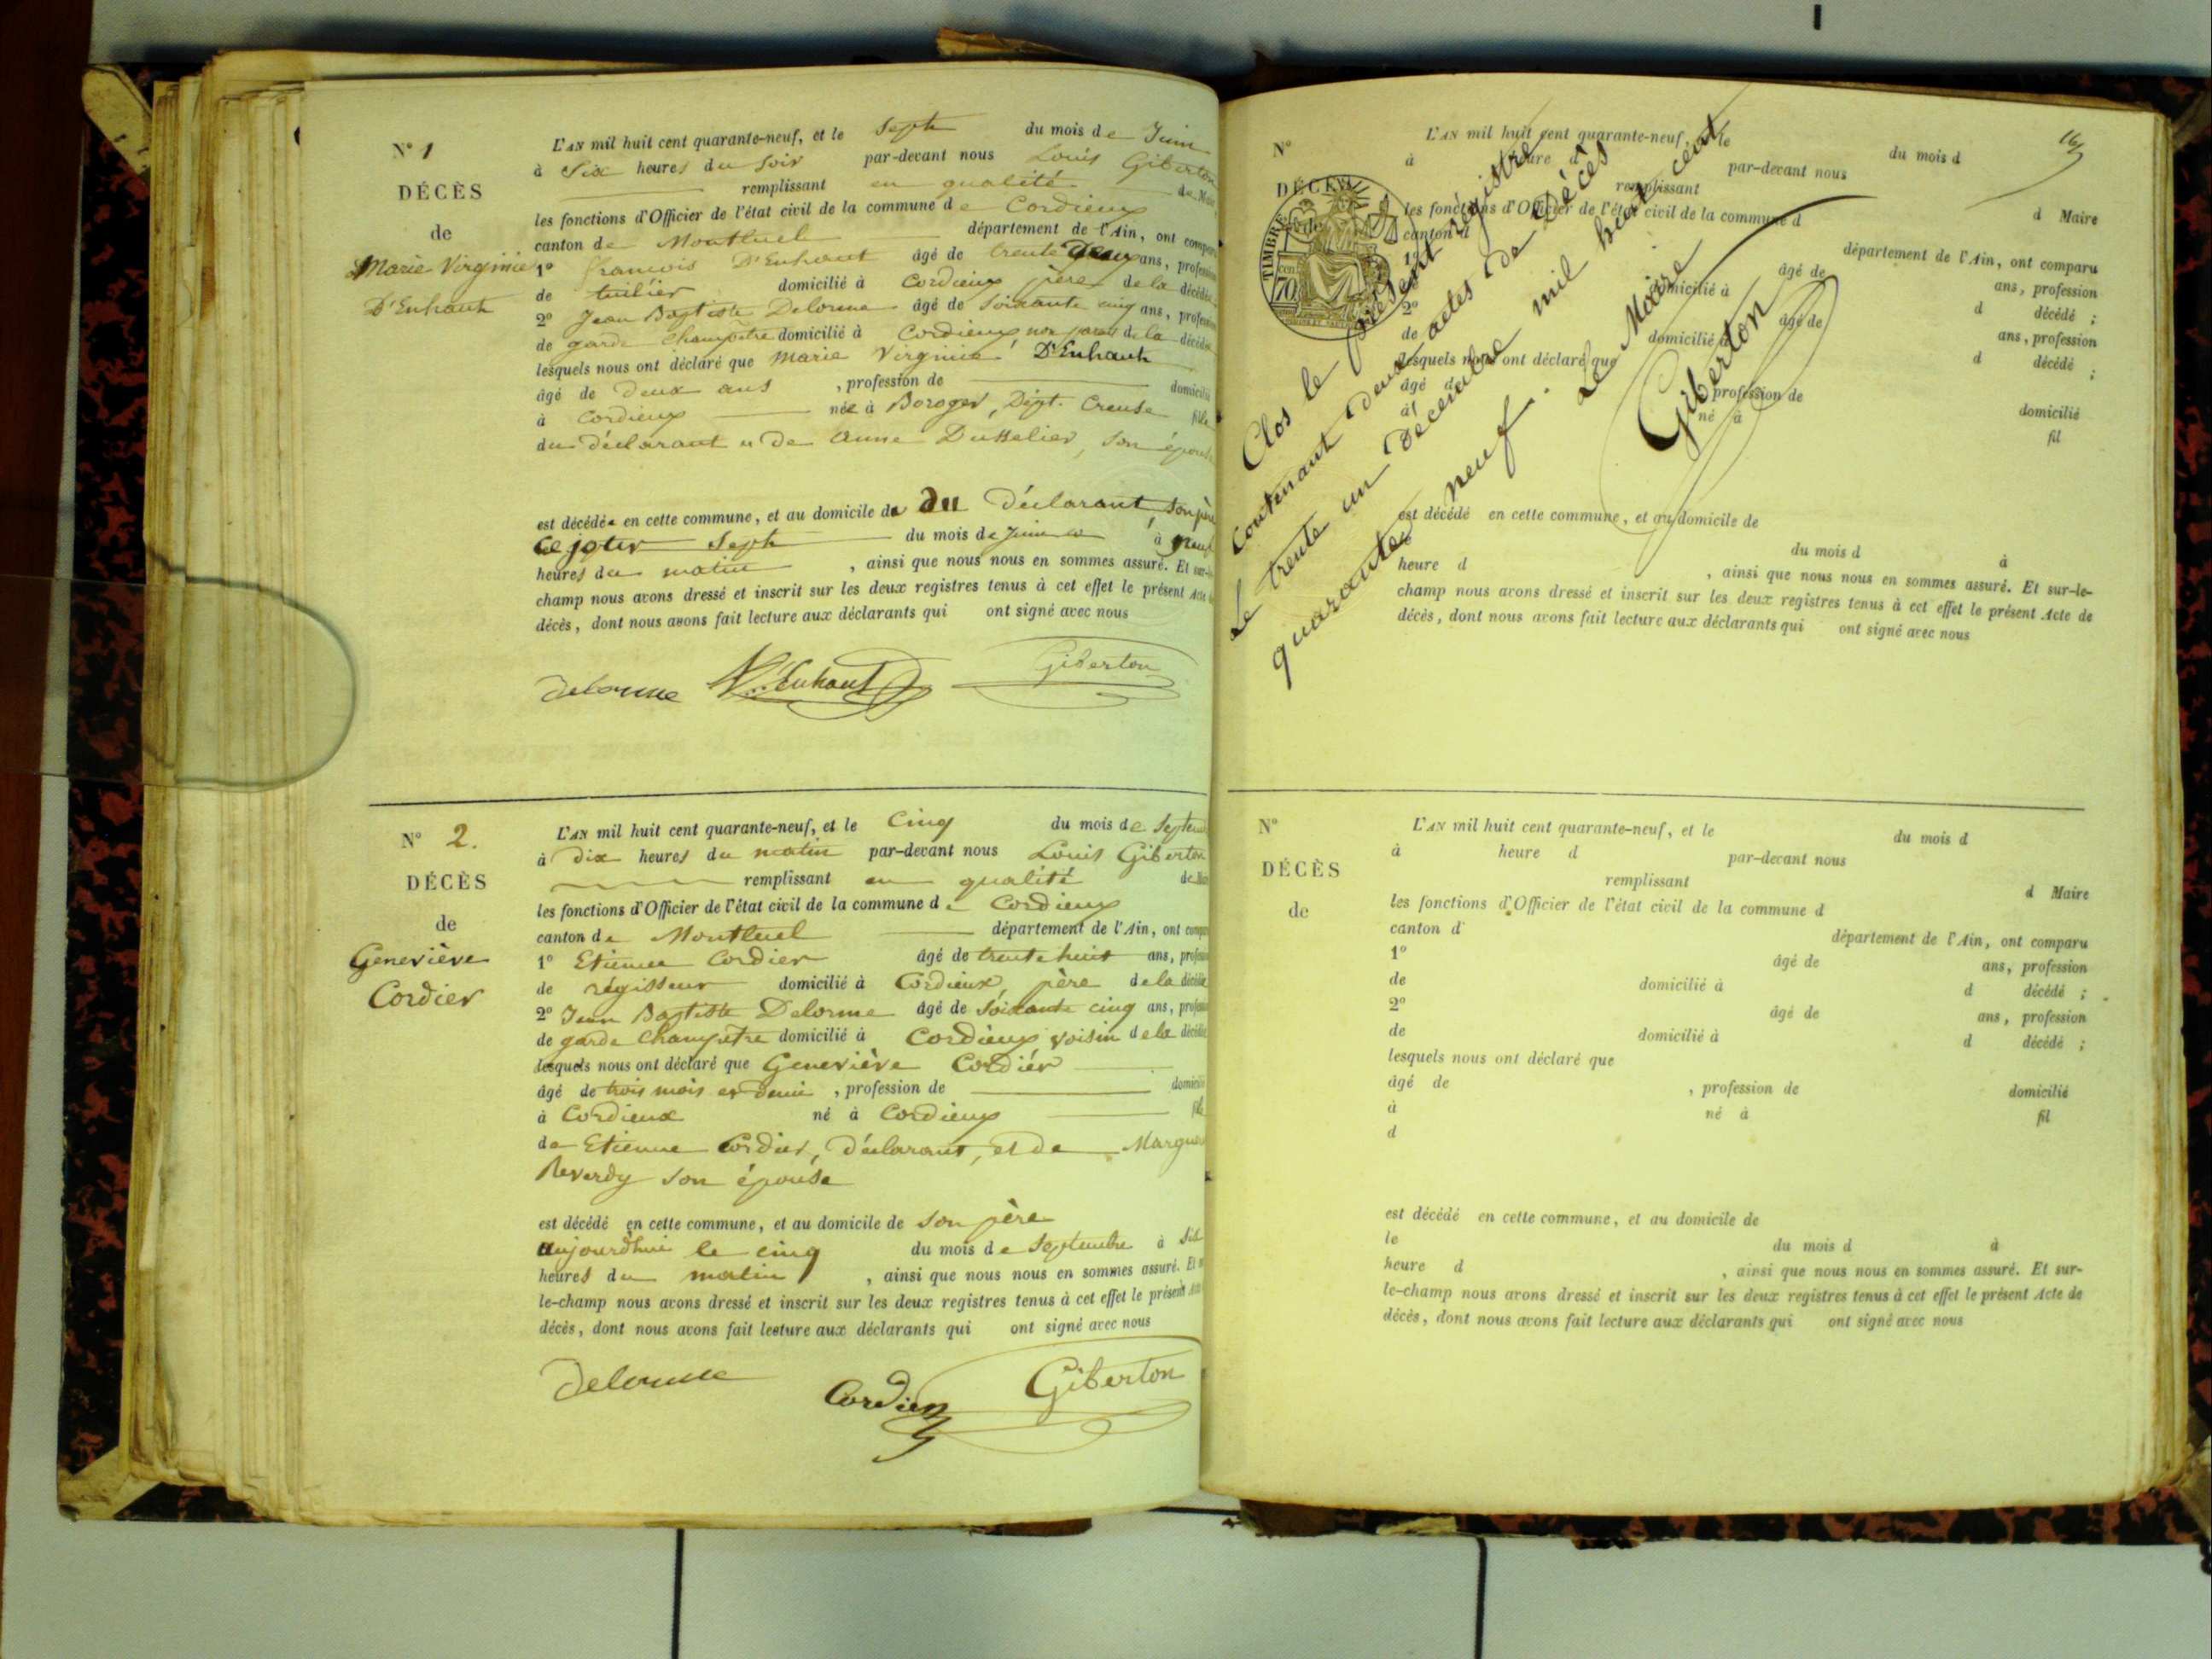 N° 1
DÉCÈS
de
Marie Virginie
D'Enhaut
L'AN mil huit cent quarante-neuf, et le Sept du mois de Juin
à Six heures du Soir par-devant nous Louis Giberton
remplissant en qualité de
les fonctions d'Officier de l'état civil de la commune de Cordieux
canton de Montluel département de l'Ain, ont
1° françois D'Enhaut âgé de trente Deux ans,
de tuilier domicilié à Cordieux père de la décédée
2° Jean Baptiste Delorme âgé de Soixante cinq ans,
de garde Champêtre domicilié à Cordieux non parent de la
lesquels nous ont déclaré que Marie Virginie D'Enhaut
âgé de Deux ans , profession de domicilié
à Cordieux née à , Dépt. Creuse fille
du déclarant et de Anne , son épouse
est décédée en cette commune, et au domicile de du Déclarant, son père
Ce jour Sept du mois de Juin à
heures du matin , ainsi que nous nous en sommes assuré. Et
champ nous avons dressé et inscrit sur les deux registres tenus à cet effet le présent Acte
décès, dont nous avons fait lecture aux déclarants qui ont signé avec nous
Delorme D'Enhaut Giberton
N° 2.
DÉCÈS
de
Geneviève
Cordier
L'AN mil huit cent quarante-neuf, et le Cinq du mois de
à Dix heures du matin par-devant nous Louis Giberton
remplissant en qualité de
les fonctions d'Officier de l'état civil de la commune de Cordieux
canton de Montluel département de l'Ain, ont
1° Etienne Cordier âgé de trente huit ans,
de régisseur domicilié à Cordieux, père de la décédée
2° Jean Baptiste Delorme âgé de Soixante cinq ans,
de garde Champêtre domicilié à Cordieux voisin de la
lesquels nous ont déclaré que Geneviève Cordier
âgé de trois mois et demi , profession de
à Cordieux né à Cordieux
de Etienne Cordier, Déclarant, et de
Reverdy son épouse
est décédé en cette commune, et au domicile de son père
aujourd'hui le cinq du mois de Septembre à
heures du matin , ainsi que nous nous en sommes assuré. Et
le-champ nous avons dressé et inscrit sur les deux registres tenus à cet effet le présent
décès, dont nous avons fait lecture aux déclarants qui ont signé avec nous
Delorme Cordier Giberton
N°
DÉCÈS
L'AN mil huit cent quarante-neuf, et le du mois d
à heure d par-devant nous
remplissant d Maire
les fonctions d'Officier de l'état civil de la commune d
canton d département de l'Ain, ont comparu
1° âgé de ans, profession
domicilié à d décédé ;
2° âgé de ans, profession
de domicilié à d décédé ;
lesquels nous ont déclaré que
âgé de profession de domicilié
à né à fil
est décédé en cette commune, et au domicile de
du mois d à
heure d , ainsi que nous nous en sommes assuré. Et sur-le-
champ nous avons dressé et inscrit sur les deux registres tenus à cet effet le présent Acte de
décès, dont nous avons fait lecture aux déclarants qui ont signé avec nous
TIMBRE
70
Clos le présent registre
Contenant deux actes de Décès
Le trente un Décembre mil huit cent
quarante neuf. Le Maire
Giberton
N°
DÉCÈS
de
L'AN mil huit cent quarante-neuf, et le du mois d
à heure d par-devant nous
remplissant d Maire
les fonctions d'Officier de l'état civil de la commune d
canton d département de l'Ain, ont comparu
1° âgé de ans, profession
de domicilié à d décédé ;
2° âgé de ans, profession
de domicilié à d décédé ;
lesquels nous ont déclaré que
âgé de , profession de domicilié
à né à fil
d
est décédé en cette commune, et au domicile de
le du mois d à
heure d , ainsi que nous nous en sommes assuré. Et sur-
le-champ nous avons dressé et inscrit sur les deux registres tenus à cet effet le présent Acte de
décès, dont nous avons fait lecture aux déclarants qui ont signé avec nous